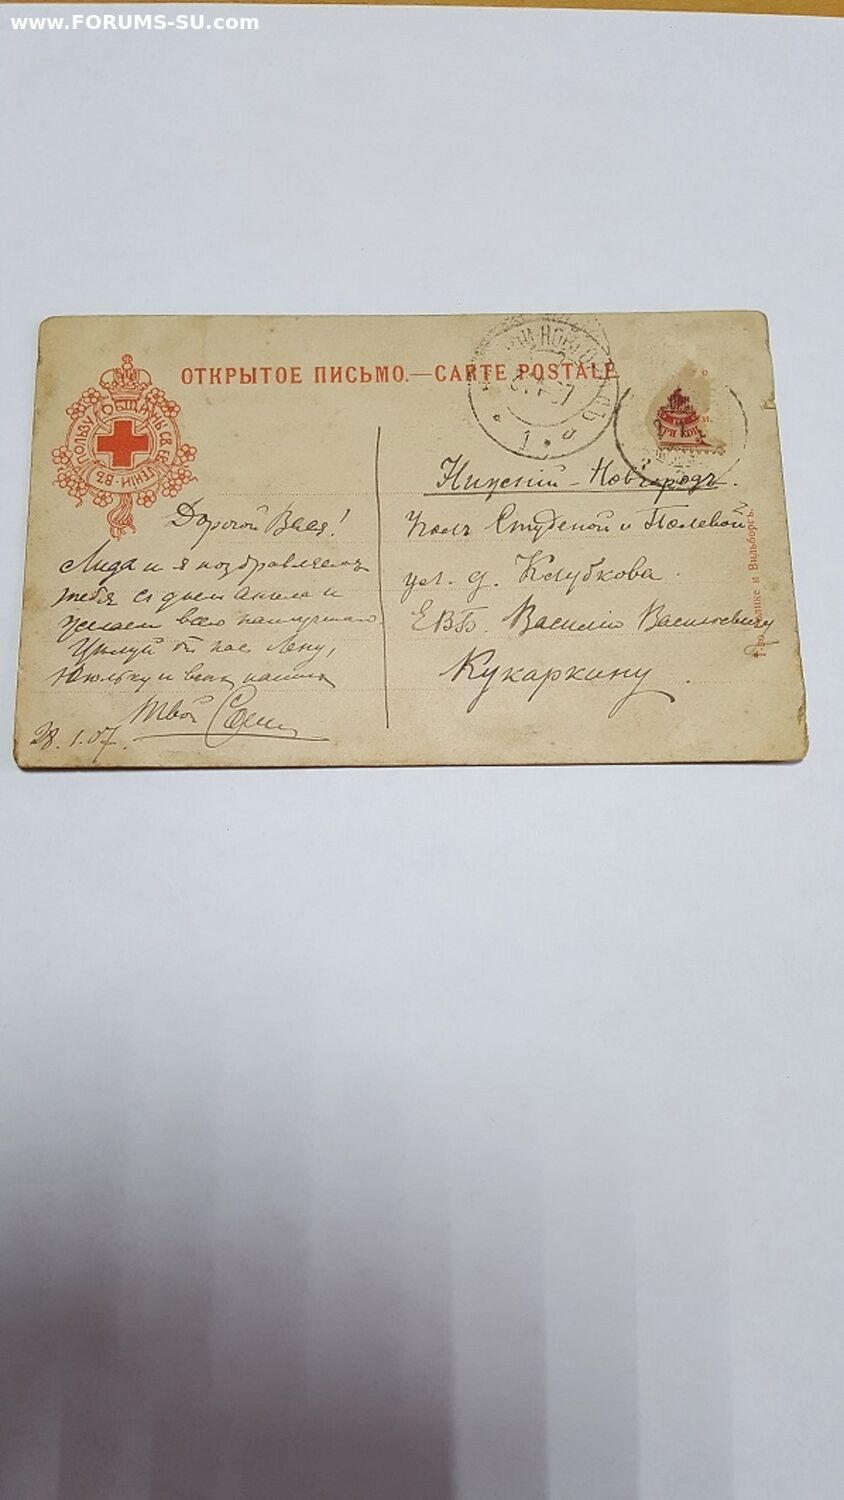 www.FORUMS-SU.com
ОТКРЫТОЕ ПИСЬМО.—CARTE POSTALE
ВЪ ПОЛЬЗУ ОБЩИНЫ СВ. ЕВГЕНІИ
НИЖНІЙ-НОВГОРОДЪ
1
ТРИ КОП
Дорогой Вася!
Лида и я поздравляемъ
тебя съ днем ангела и
желаем всего наилучшаго.
Цѣлуй отъ нас Лену,
и всѣхъ нашихъ
Твой
28.1.07.
Нижній-Новгородъ.
Студеной и Полевой
ул. д. Клубкова.
ЕВБ. Василію Васильевичу
Кукаркину.
Голике и Вильборгъ.